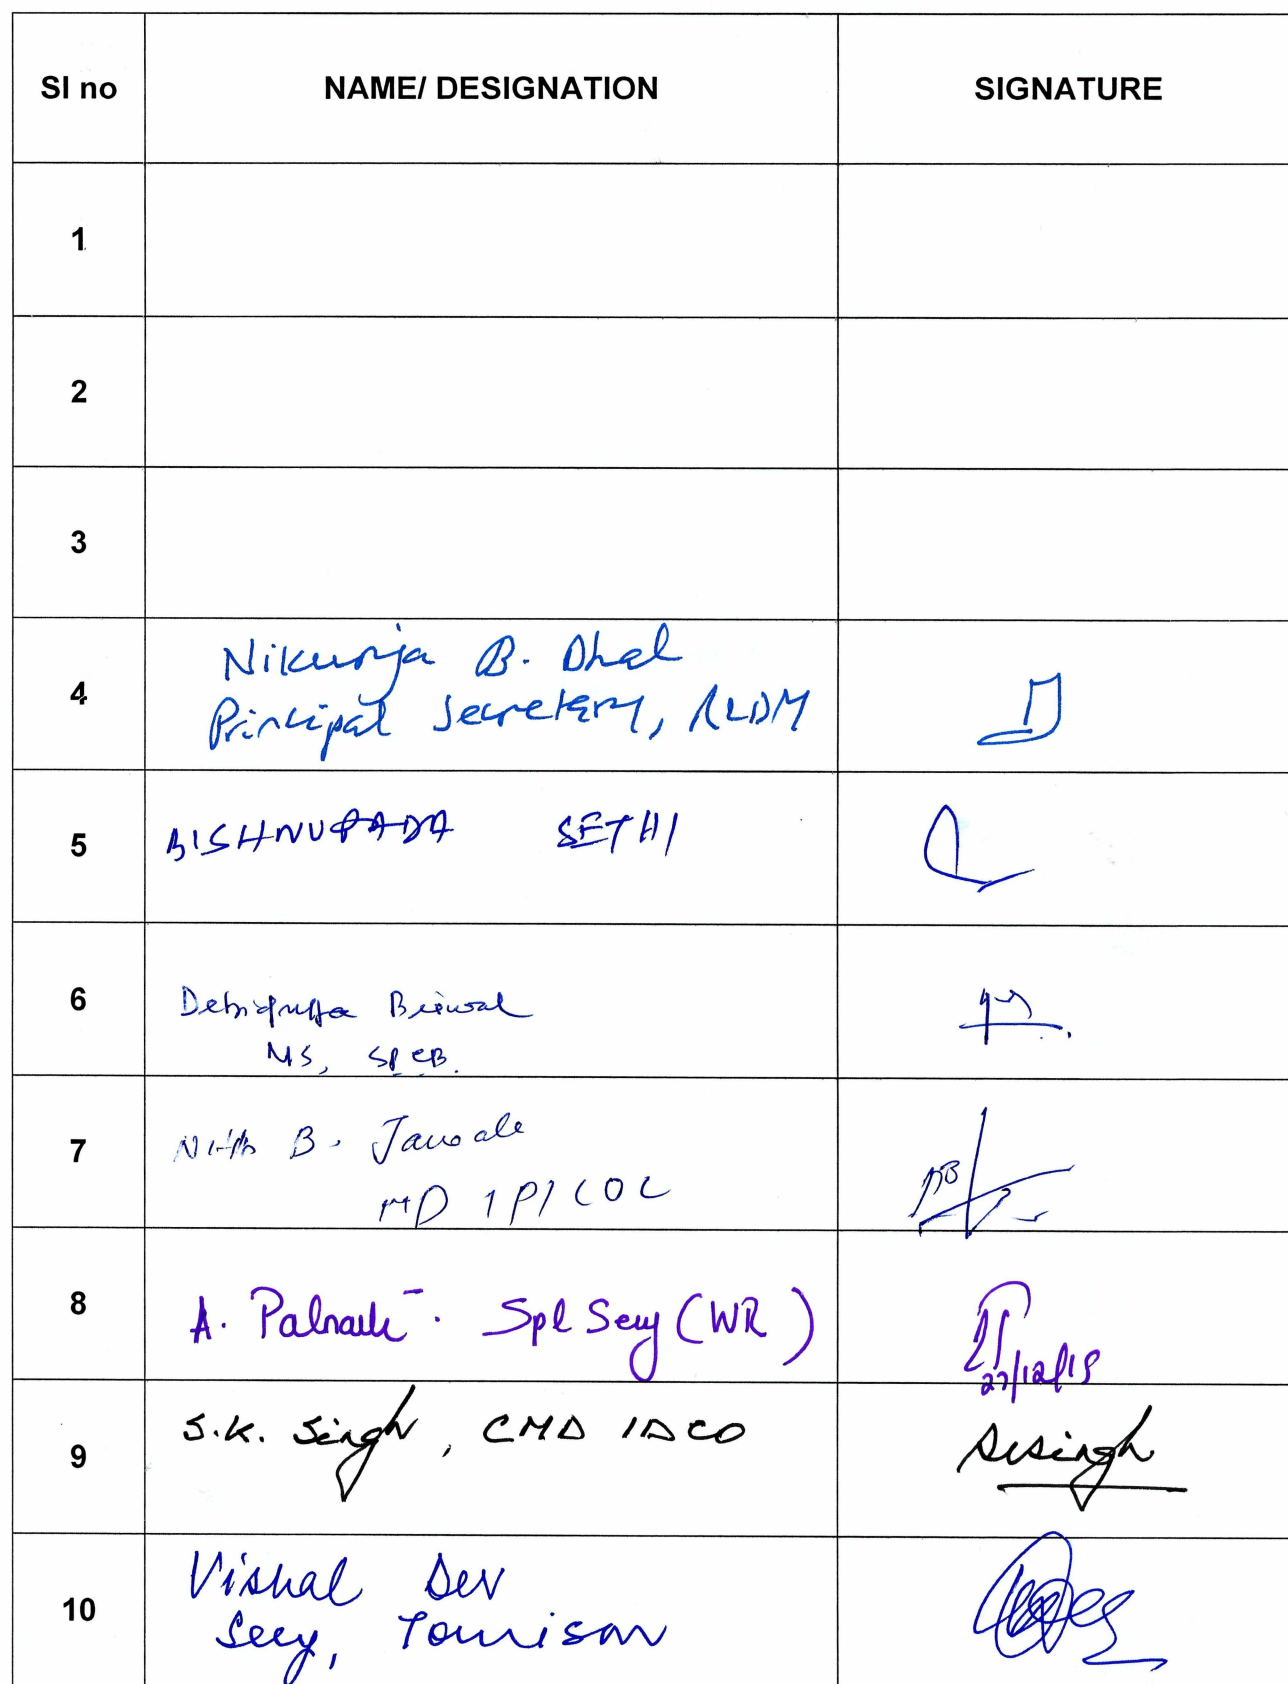 Sl no NAME/ DESIGNATION SIGNATURE
1
2
3
4
Nikunja B. Dhal
Principal Secretary, RLDM
5 BISHNUPADA SETHI
6
MS, SPCB.
7
B. MD IPICOL
8 A. Spl Secy (WR) 27/12/19
9 S.K. Singh, CMD IDCO SKSingh
10
Vishal Dev
Secy, Tourism